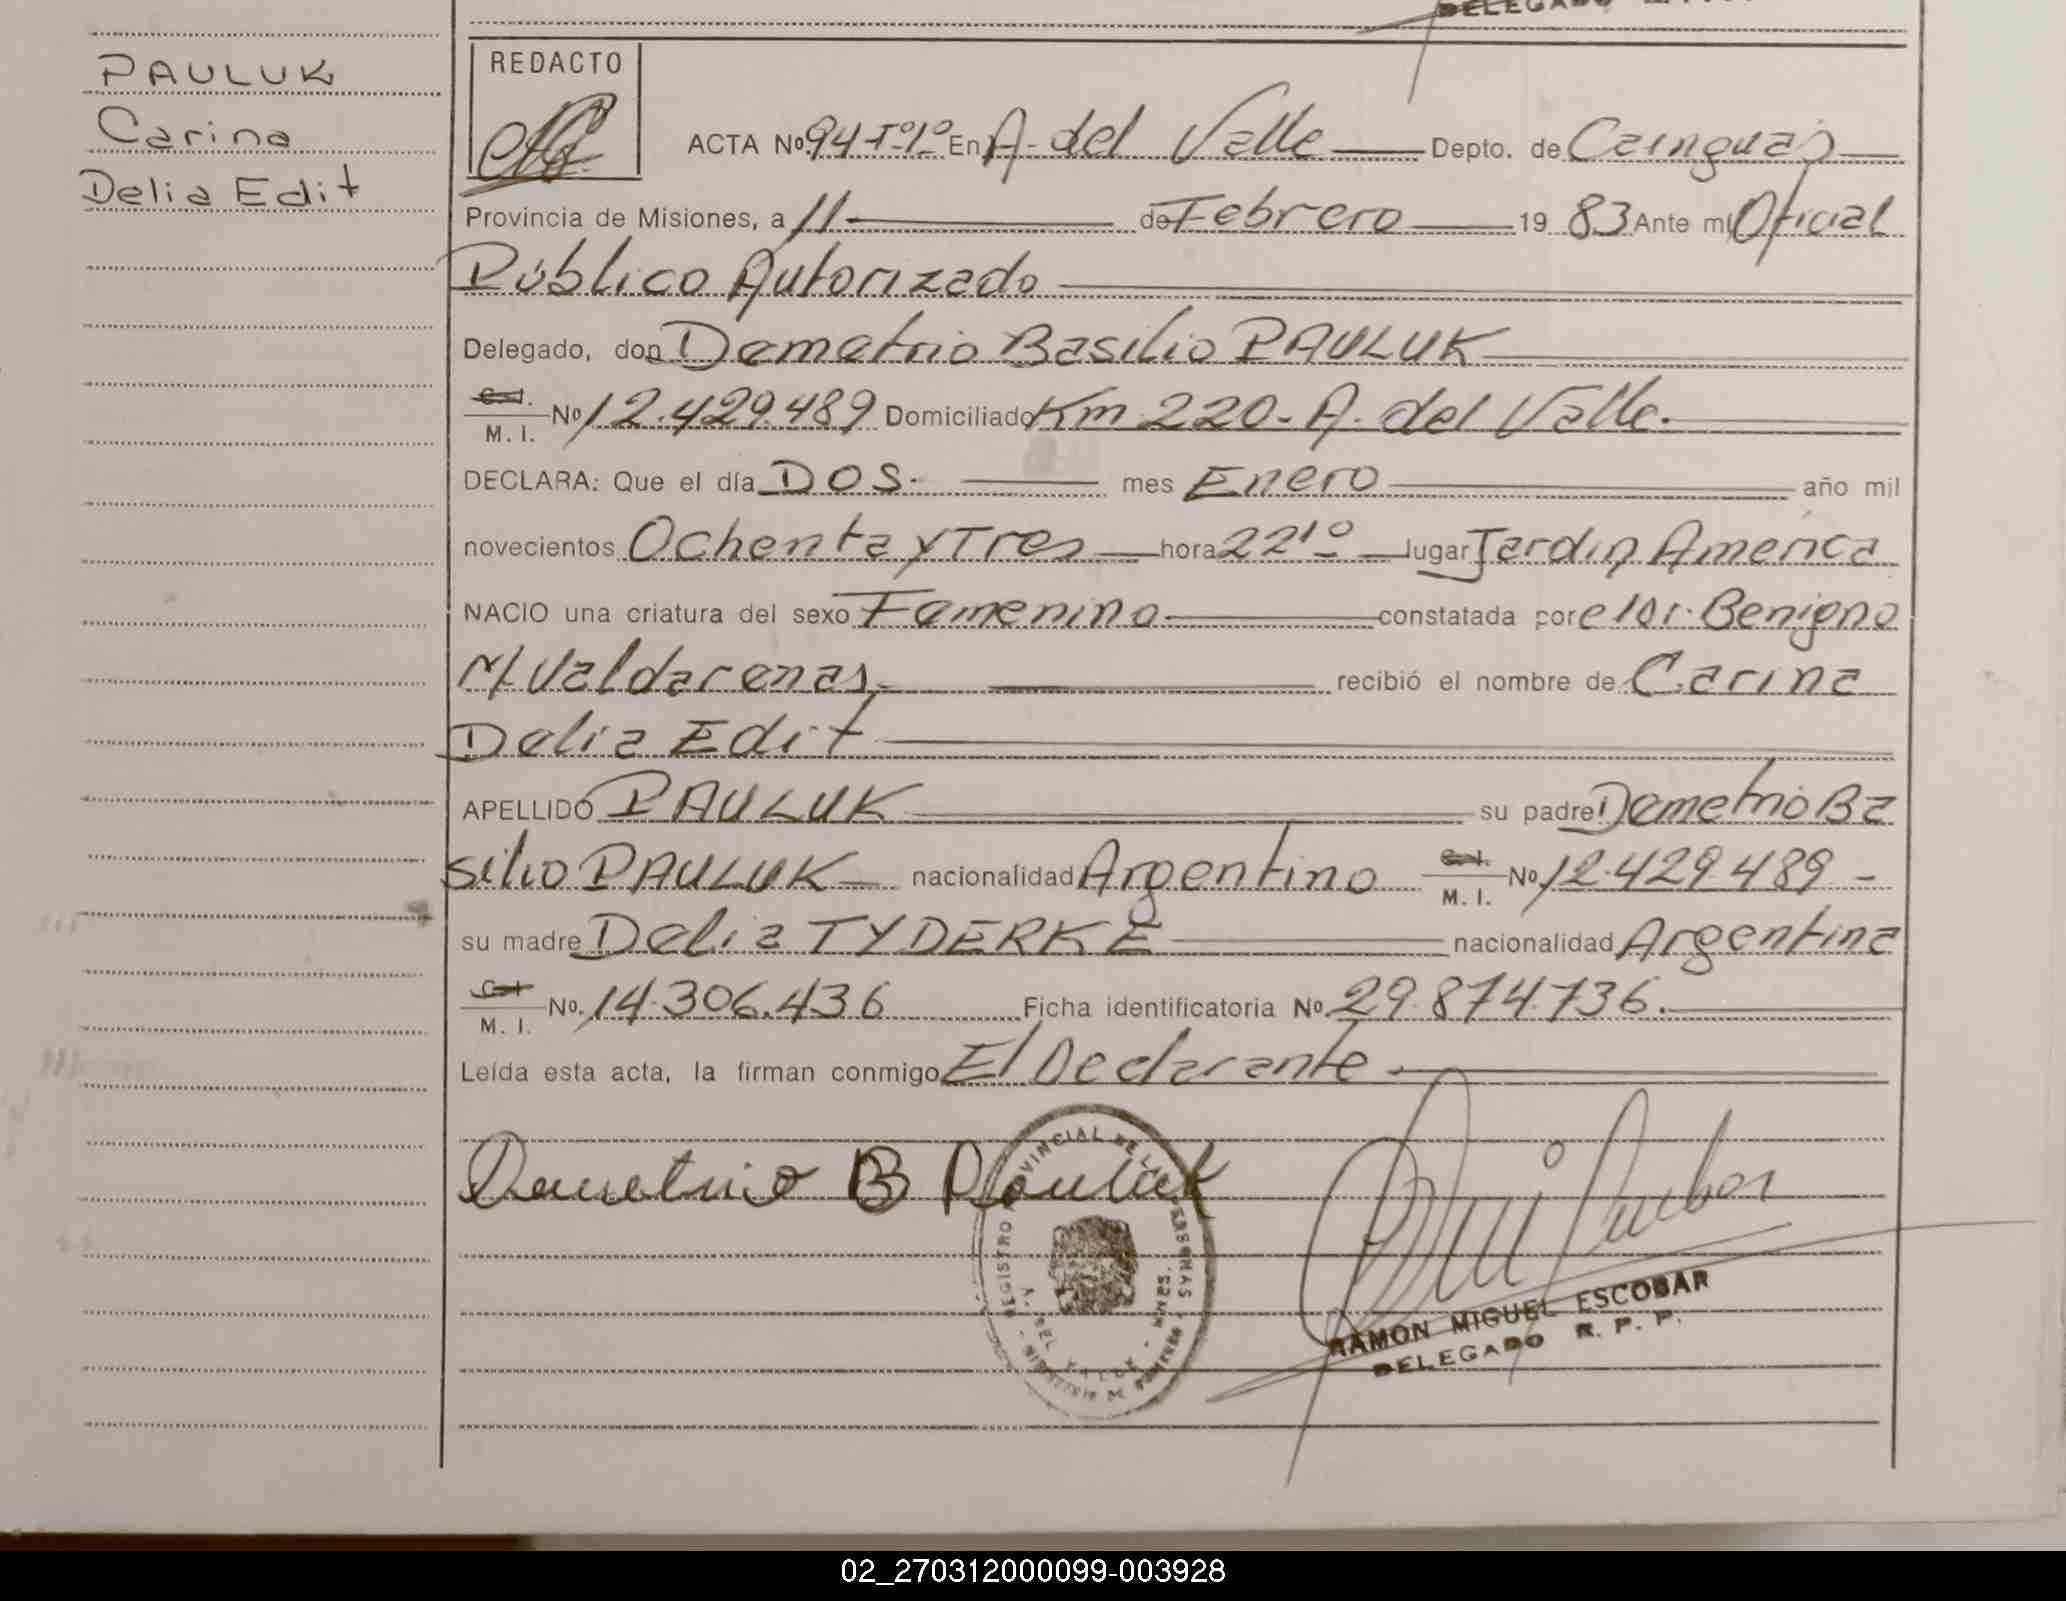 PAULUK
Carina
Delia Edit
REDACTO
ACTA Nº 94 Tº1º En A. del Valle Depto. de Cainguás
Provincia de Misiones, a 11 de Febrero 19 83 Ante mí Oficial
Público Autorizado
Delegado, don Demetrio Basilio PAULUK
C.I. M. I. Nº 12.429.489 Domiciliado Km 220 - A. del Valle.
DECLARA: Que el día DOS. mes Enero año mil
novecientos Ochenta y Tres hora 22 1º lugar Jardin America
NACIO una criatura del sexo Femenino constatada por el Dr. Benigno
M. Valdarenas recibió el nombre de Carina
Delia Edit
APELLIDO PAULUK su padre Demetrio Ba
silio PAULUK nacionalidad Argentino C.I. M. I. Nº 12.429.489 -
su madre Delia TYDERKE nacionalidad Argentina
C.I. M. I. Nº. 14.306.436 Ficha identificatoria Nº. 29.874.736.
Leída esta acta, la firman conmigo El Declarante
Demetrio B Pauluk
REGISTRO PROVINCIAL DE LAS PERSONAS
A. DEL VALLE - MNES.
RAMON MIGUEL ESCOBAR
DELEGADO R. P. P.
02_270312000099-003928